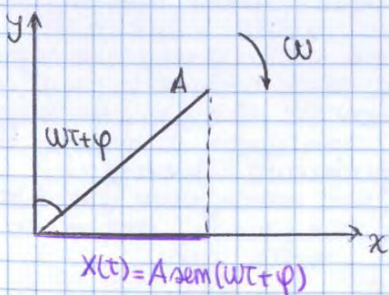 y
ω
A
ωt+φ
x
x(t)=A sen(ωt+φ)